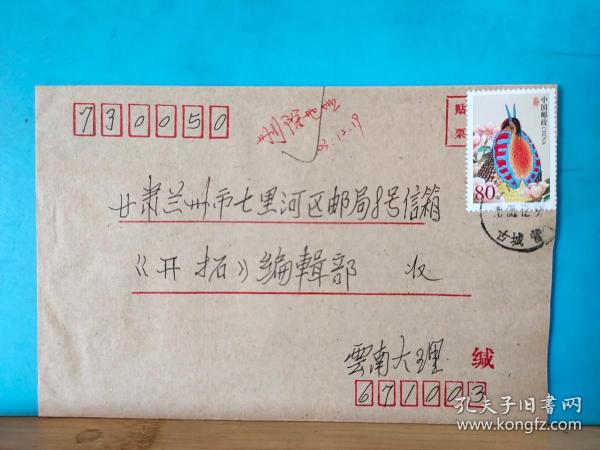 730050
03.12.19
贴
票
中国邮政 CHINA
80
古城營
甘肃兰州市七里河区邮局8号信箱
《开拓》编輯部 收
雲南大理 缄
671003
孔夫子旧书网
www.kongfz.com